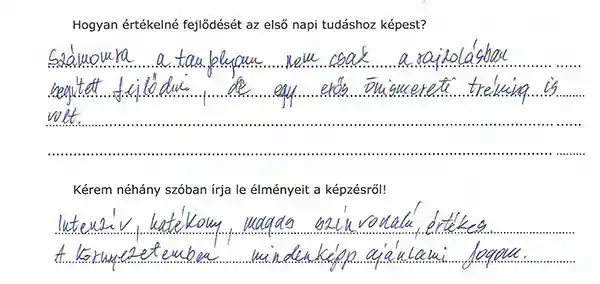 Hogyan értékelné fejlődését az első napi tudáshoz képest?
Számomra a tanfolyam nem csak a rajzolásban
segített fejlődni, de egy erős önismereti tréning is
volt.
Kérem néhány szóban írja le élményeit a képzésről!
Intenzív, hatékony, magas színvonalú, értékes.
A környezetemben mindenképp ajánlani fogom.